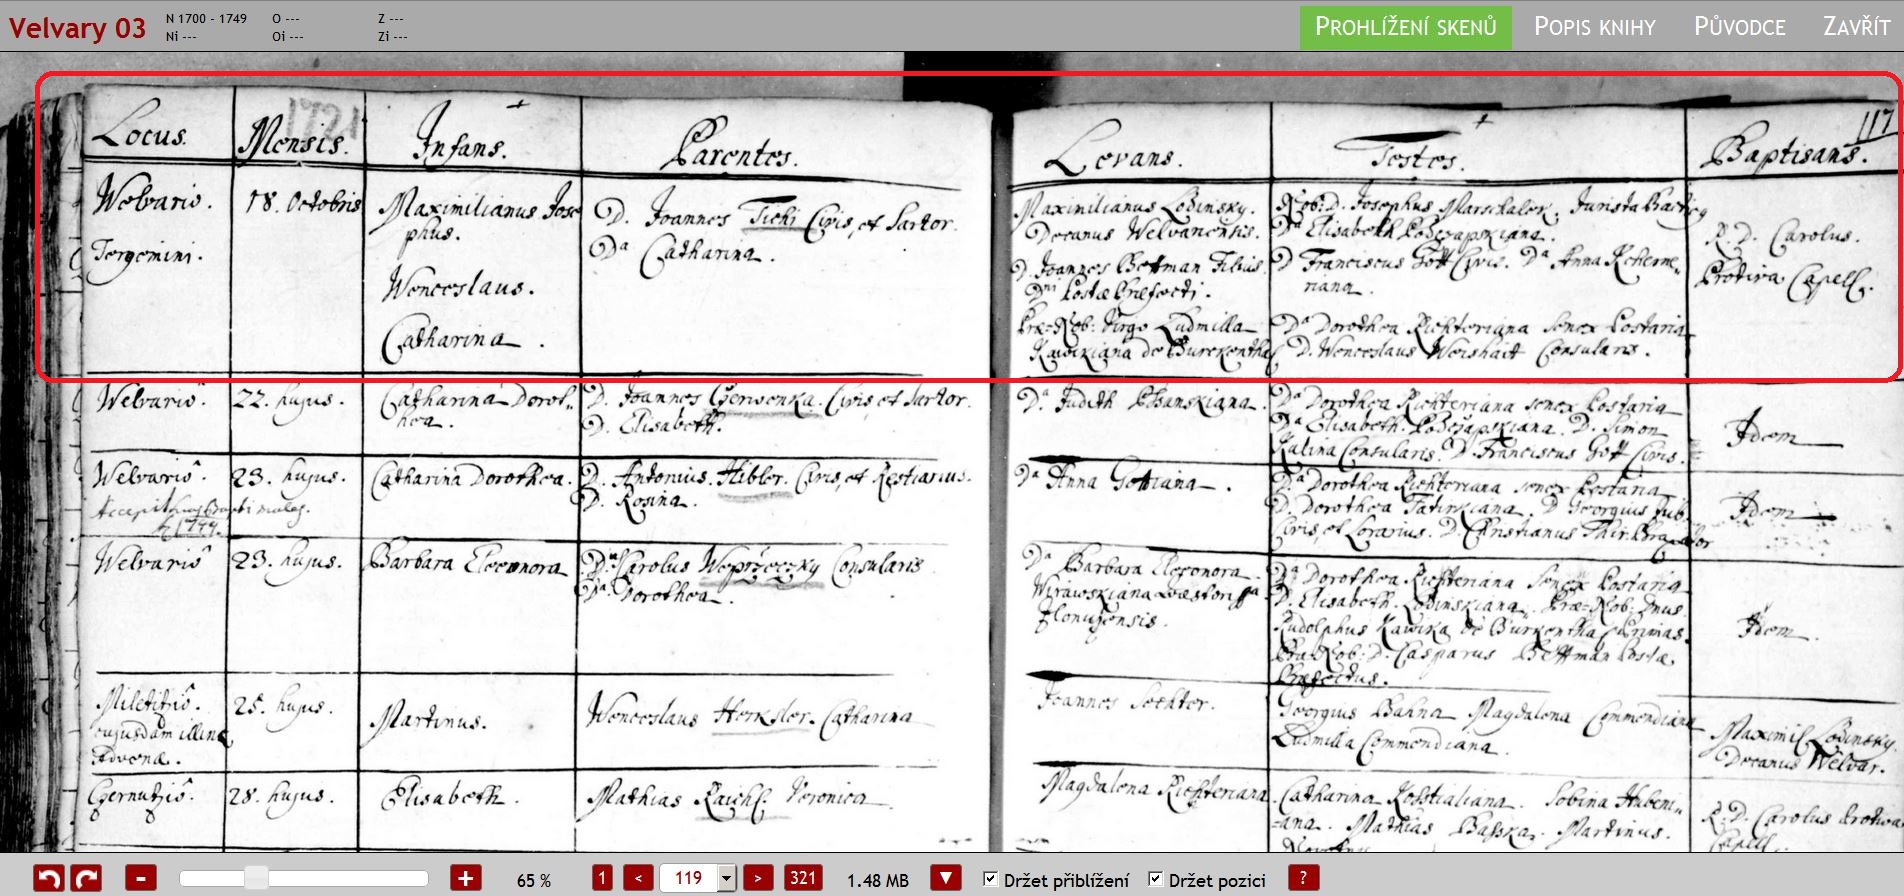 Velvary 03
N 1700 - 1749 O --- Z ---
Ni --- Oi --- Zi ---
Prohlížení skenů Popis knihy Původce Zavřít
1721
117
Locus. Mensis. Infans. Parentes. Levans. Testes. Baptisans.
Welvario.
Tergemini.
18. Octobris
Maximilianus Jose
phus.
Wenceslaus.
Catharina.
D. Joannes Tichi Civis, et Sartor.
Da Catharina.
Maximilianus Lodinsky.
Decanus Welvanensis.
D. Joannes Bettman Filius
Dni Postae Praefecti.
Prae-Nob: Virgo Ludmilla
Kawkiana de
Nob: D. Josephus Marschalek. Jurista
Da Elisabeth
D Franciscus Gött Civis. Da Anna
riana.
Da Dorothea Richteriana senex Postaria
D. Wenceslaus Consularis.
R. D. Carolus.
Protiva Capell.
Welvario
22. hujus.
Catharina Dorot-
hea.
D. Joannes Czerwenka. Civis et Sartor.
D. Elisabeth.
Da. Judith
Da Dorothea Richteriana senex Postaria
Da Elisabeth D. Simon
Kalina Consularis. D. Franciscus Gött Civis.
Idem
Welvario
23. hujus.
Catharina Dorothea.
D. Antonius. Hibler. Civis, et Restiarius.
D. Rosina.
Da Anna Gottiana.
Da Dorothea Richteriana senex Postaria
D. Dorothea D Georgius
Civis, et Lorarius. D. Christianus
Idem
Welvario
23. hujus.
Barbara Eleonora
D. Carolus Wopršeczky Consularis
Da. Dorothea.
Da Barbara Eleonora
Da Dorothea Richteriana Senex Postaria
D. Elisabeth. Lodinskiana. Prae-Nob: Dnus
Rudolphus Kawka de
Prae-Nob: D. Casparus Bettman Postae
Praefectus.
Idem
25. hujus.
Martinus.
Wenceslaus Catharina
Joannes Sechter.
Georgius Bahna Magdalena Commendiana
Ludmilla Commendiana.
Maximil Lodinsky.
Decanus Welvar.
28. hujus.
Elisabeth.
Mathias Veronica
Magdalena Richteriana.
Catharina Sobina
Mathias Martinus.
R. D. Carolus Protiva
Capell.
- + 65 % 1 < 119 > 321 1.48 MB ▼ Držet přiblížení Držet pozici ?